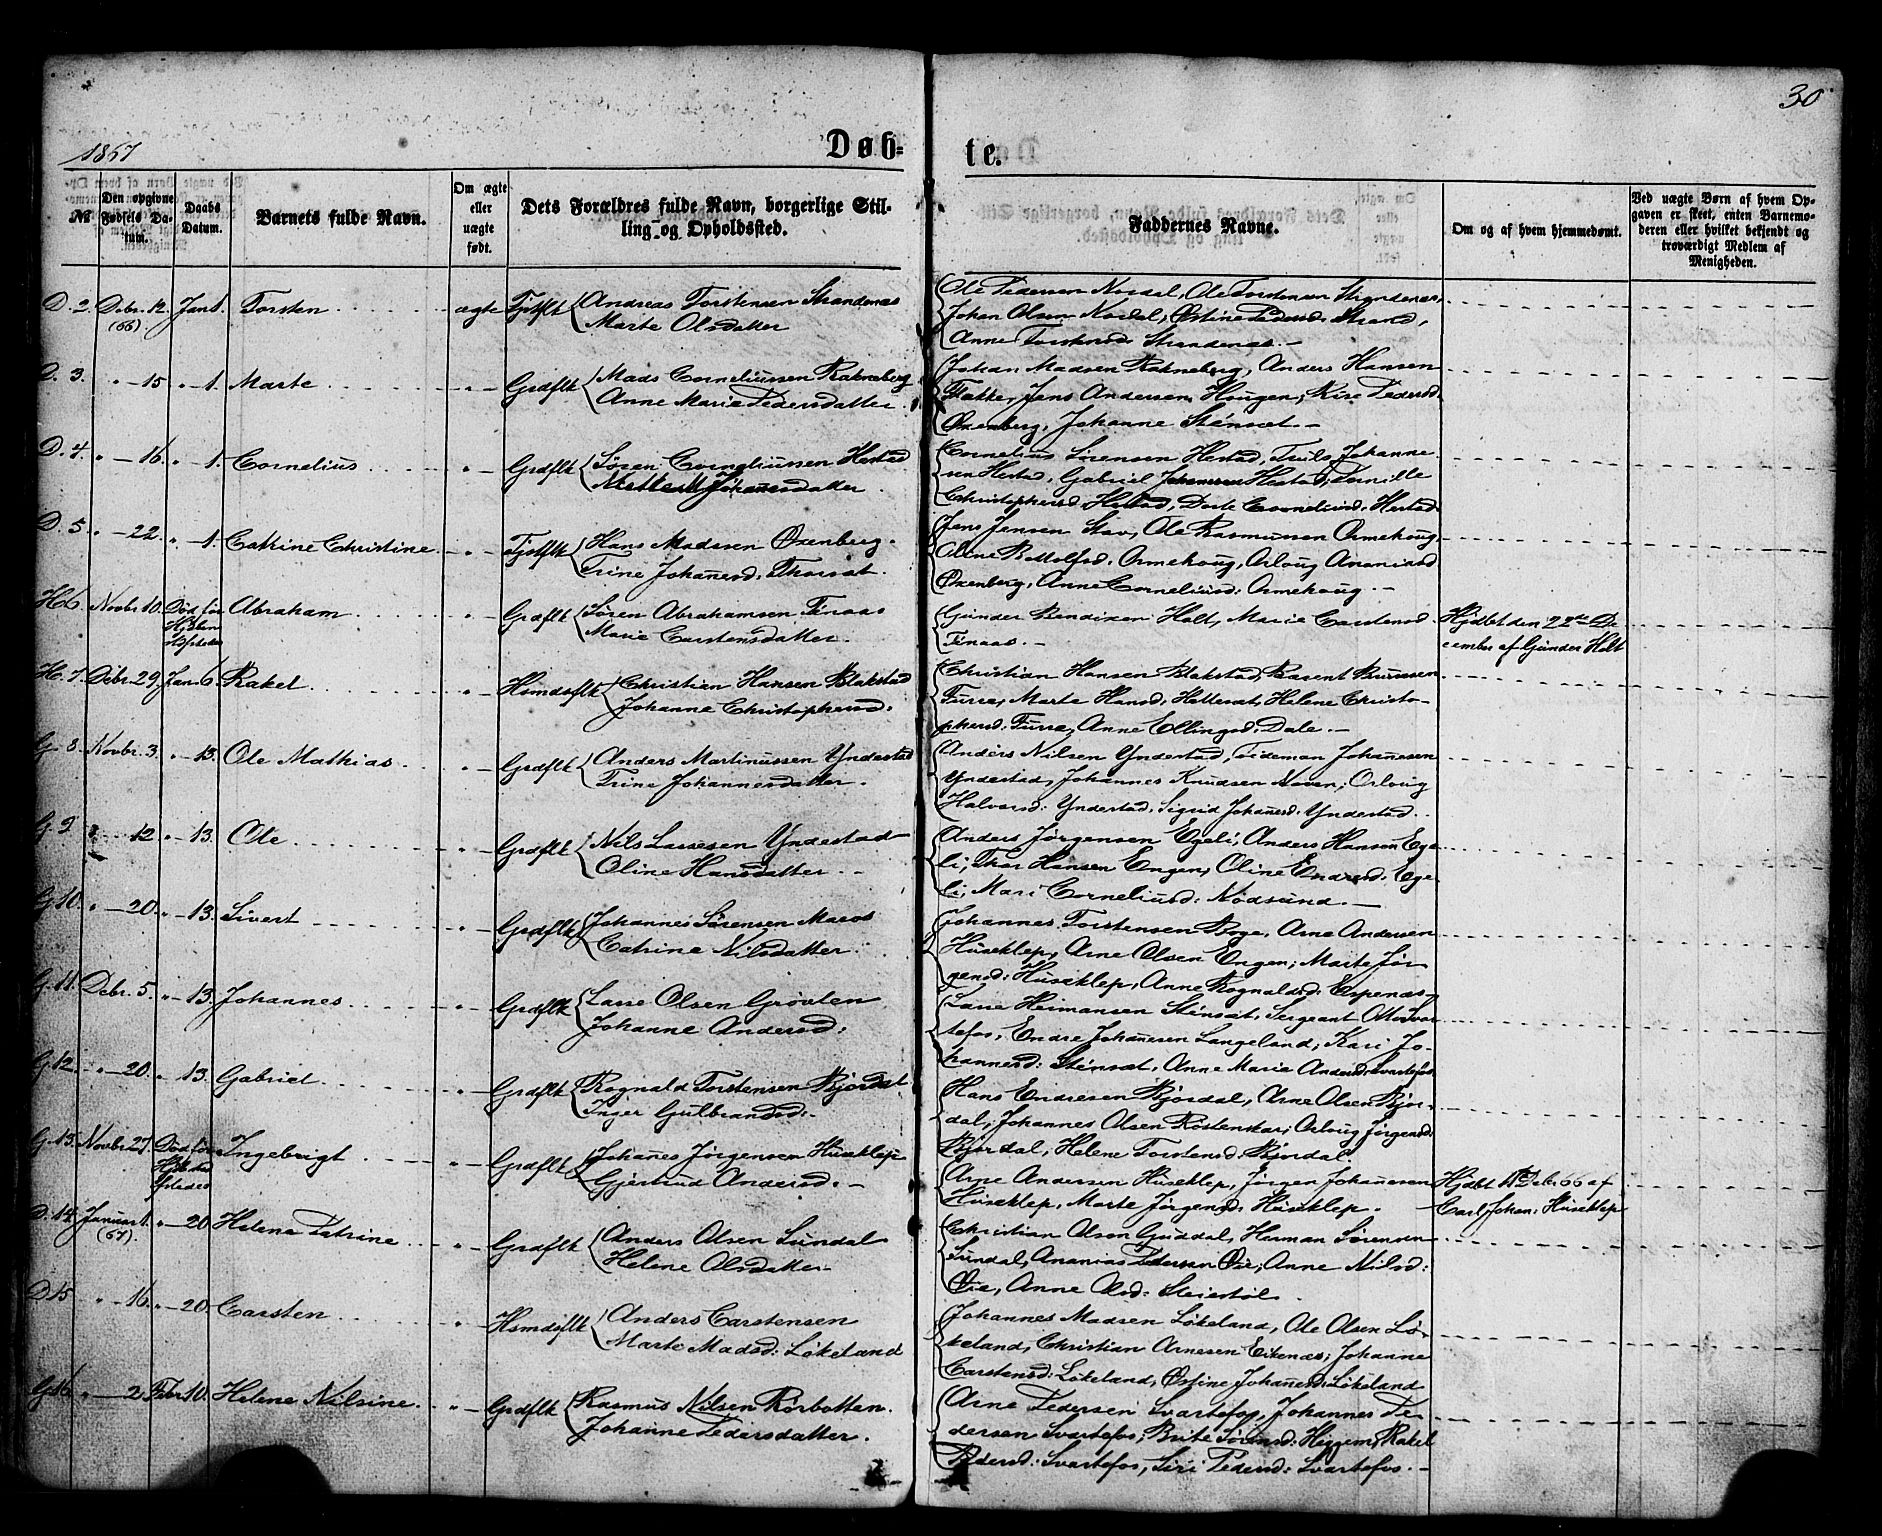 30
1867
Døb-
te.
№
Den opgivne Fødsels Datum.
Daabs Datum.
Barnets fulde Navn.
Om ægte eller uægte født.
Dets Forældres fulde Navn, borgerlige Stilling og Opholdssted.
Faddernes Navne.
Om og af hvem hjemmedømt.
Ved uægte Børn af hvem Opgaven er skeet, enten Barnemoderen eller hvilket bekjendt og troværdigt Medlem af Menigheden.
D. 2. Debr. 12. (66) Jan 1. Torsten ægte Tjstflk Andreas Torstensen Strandenæs
Marte Olsdatter
Ole Pedersen Nordal, Ole Torstensen Strandenæs,
Johan Olsen Nordal, Østine Pedersd: Strand,
Anne Torstensd: Strandenæs. –
D. 3. " – 15 " – 1. Marte " – Grdflk Mads Corneliussen Rakneberg
Anne Marie Pedersdatter.
Johan Madsen Rakneberg, Anders Hansen
Flekke, Jens Andersen Hougen, Pedersd.
Oxenberg, Johanne Stensæt. –
D. 4. " – 16 " – 1. Cornelius " – Grdflk Søren Corneliussen Hestad
Johannesdatter.
Cornelius Sørensen Hestad, Truls Johanne
sen Hestad, Gabriel Johannessen Hestad, Pernille
Christophersd. Hestad, Dorte Corneliusd. Hestad
D. 5 " – 22. " – 1. Catrine Christine " – Tjstflk Hans Madsen Oxenberg.
Trine Johanesd. Thorsæt.
Jens Jensen Stav, Ole Rasmussen Ormehoug
Oline Bottolfsd. Ormehoug, Orloug Ananiasd
Oxenberg, Anne Corneliusd: Ormehoug. –
H. 6. Novbr 10. Død før Abraham " – Grdflk Søren Abrahamsen Tenaas
Marie Carstensdatter.
Gunder Bendixen Holt, Marie Carstensd
Tenaas. –
Hjdbt den 22de De
cember af Gunder Holt
H. 7. Debr. 29. Jan 6. Rakel " – Hsmdsflk Christian Hansen Blakstad
Johanne Christophersd:
Christian Hansen Blakstad, Berent
Furre, Marte Hansd. Hellesæt, Helene Christo-
phersd: Furre, Anne Ellingsd: Dale. –
G. 8. Novbr. 3. " – 13. Ole Mathias " – Grdflk Anders Martinussen Yndestad
Trine Johannesdatter.
Anders Nilsen Yndestad, Tideman Johanessen
Yndestad, Johannes Knudsen Noven, Orloug
Halvorsd: Yndestad, Sigrid Johanesd. Yndestad.
G. 9 " 12 " – 13. Ole " – Grdflk Nils Lassesen Yndestad
Oline Hansdatter. –
Anders Jørgensen Egeli, Anders Hansen Ege
li, Thor Hansen Engen, Oline Endresd: Ege-
li, Mari Corneliusd: Nødsund. –
G. 10. " – 20. " – 13. Sivert " – Grdflk Johannes Sørensen Maros
Catrine Nilsdatter.
Johannes Torstensen Borge, Arne Andersen
Huseklep, Arne Olsen Engen, Marte Jør
gensd: Huseklep, Anne Rognaldsd: Espenæs –
G. 11. Debr. 5. " – 13. Johannes " – Grdflk Lasse Olsen Grøvlen
Johanne Andersd:
Lasse Heimansen Stensæt, Sergeant Svar
tefos, Endre Johanesen Langeland, Kari Jo-
hannesd: Stensæt, Anne Marie Andersd: Svartefos
G. 12. " – 20. " 13. Gabriel " – Grdflk Rognald Torstensen Bjordal
Inger Gulbrandsd:
Hans Endresen Bjørdal, Arne Olsen Bjor-
dal, Johannes Olsen Rostenskar, Orloug Jørgensd.
Bjordal, Helene Torstensd. Bjordal.
G. 13. Novbr. 27. Død før Ingebrigt " – Grdflk Johanes Jørgensen Huseklep
Gjertrud Andersd: –
Arne Andersen Huseklep, Jørgen Johanesen
Huseklep, Marte Jørgensd. Huseklep.
Hjdbt Debr 66 af
Carl Johan: Huseklep
D. 14. Januar 1. (67). " – 20 Helene Patrine " – Grdflk Anders Olsen Sundal
Helene Olsdatter
Christian Olsen Guddal, Herman Sørensen
Sundal, Ananias Pedersen Øie, Anne Nilsd:
Øie, Anne Olsd: Steiestøl.
D 15 " – 16. " – 20. Carsten " – Hsmdsflk Anders Carstensen
Marte Madsd: Løkeland
Johannes Madsen Løkeland, Ole Olsen Lø-
keland, Christian Arnesen Eikenæs, Johanne
Carstensd: Løkeland, Østine Johanesd. Løkeland
G. 16 " – 2. Febr 10. Helene Nilsine " – Grdflk Rasmus Nilsen Rørbotten.
Johanne Pedersdatter.
Arne Pedersen Svartefos, Johannes Pe-
dersen Svartefos, Brite Sørensd: Heggem, Rakel
Pedersd: Svartefos, Siri Pedersd: Svartefos. –